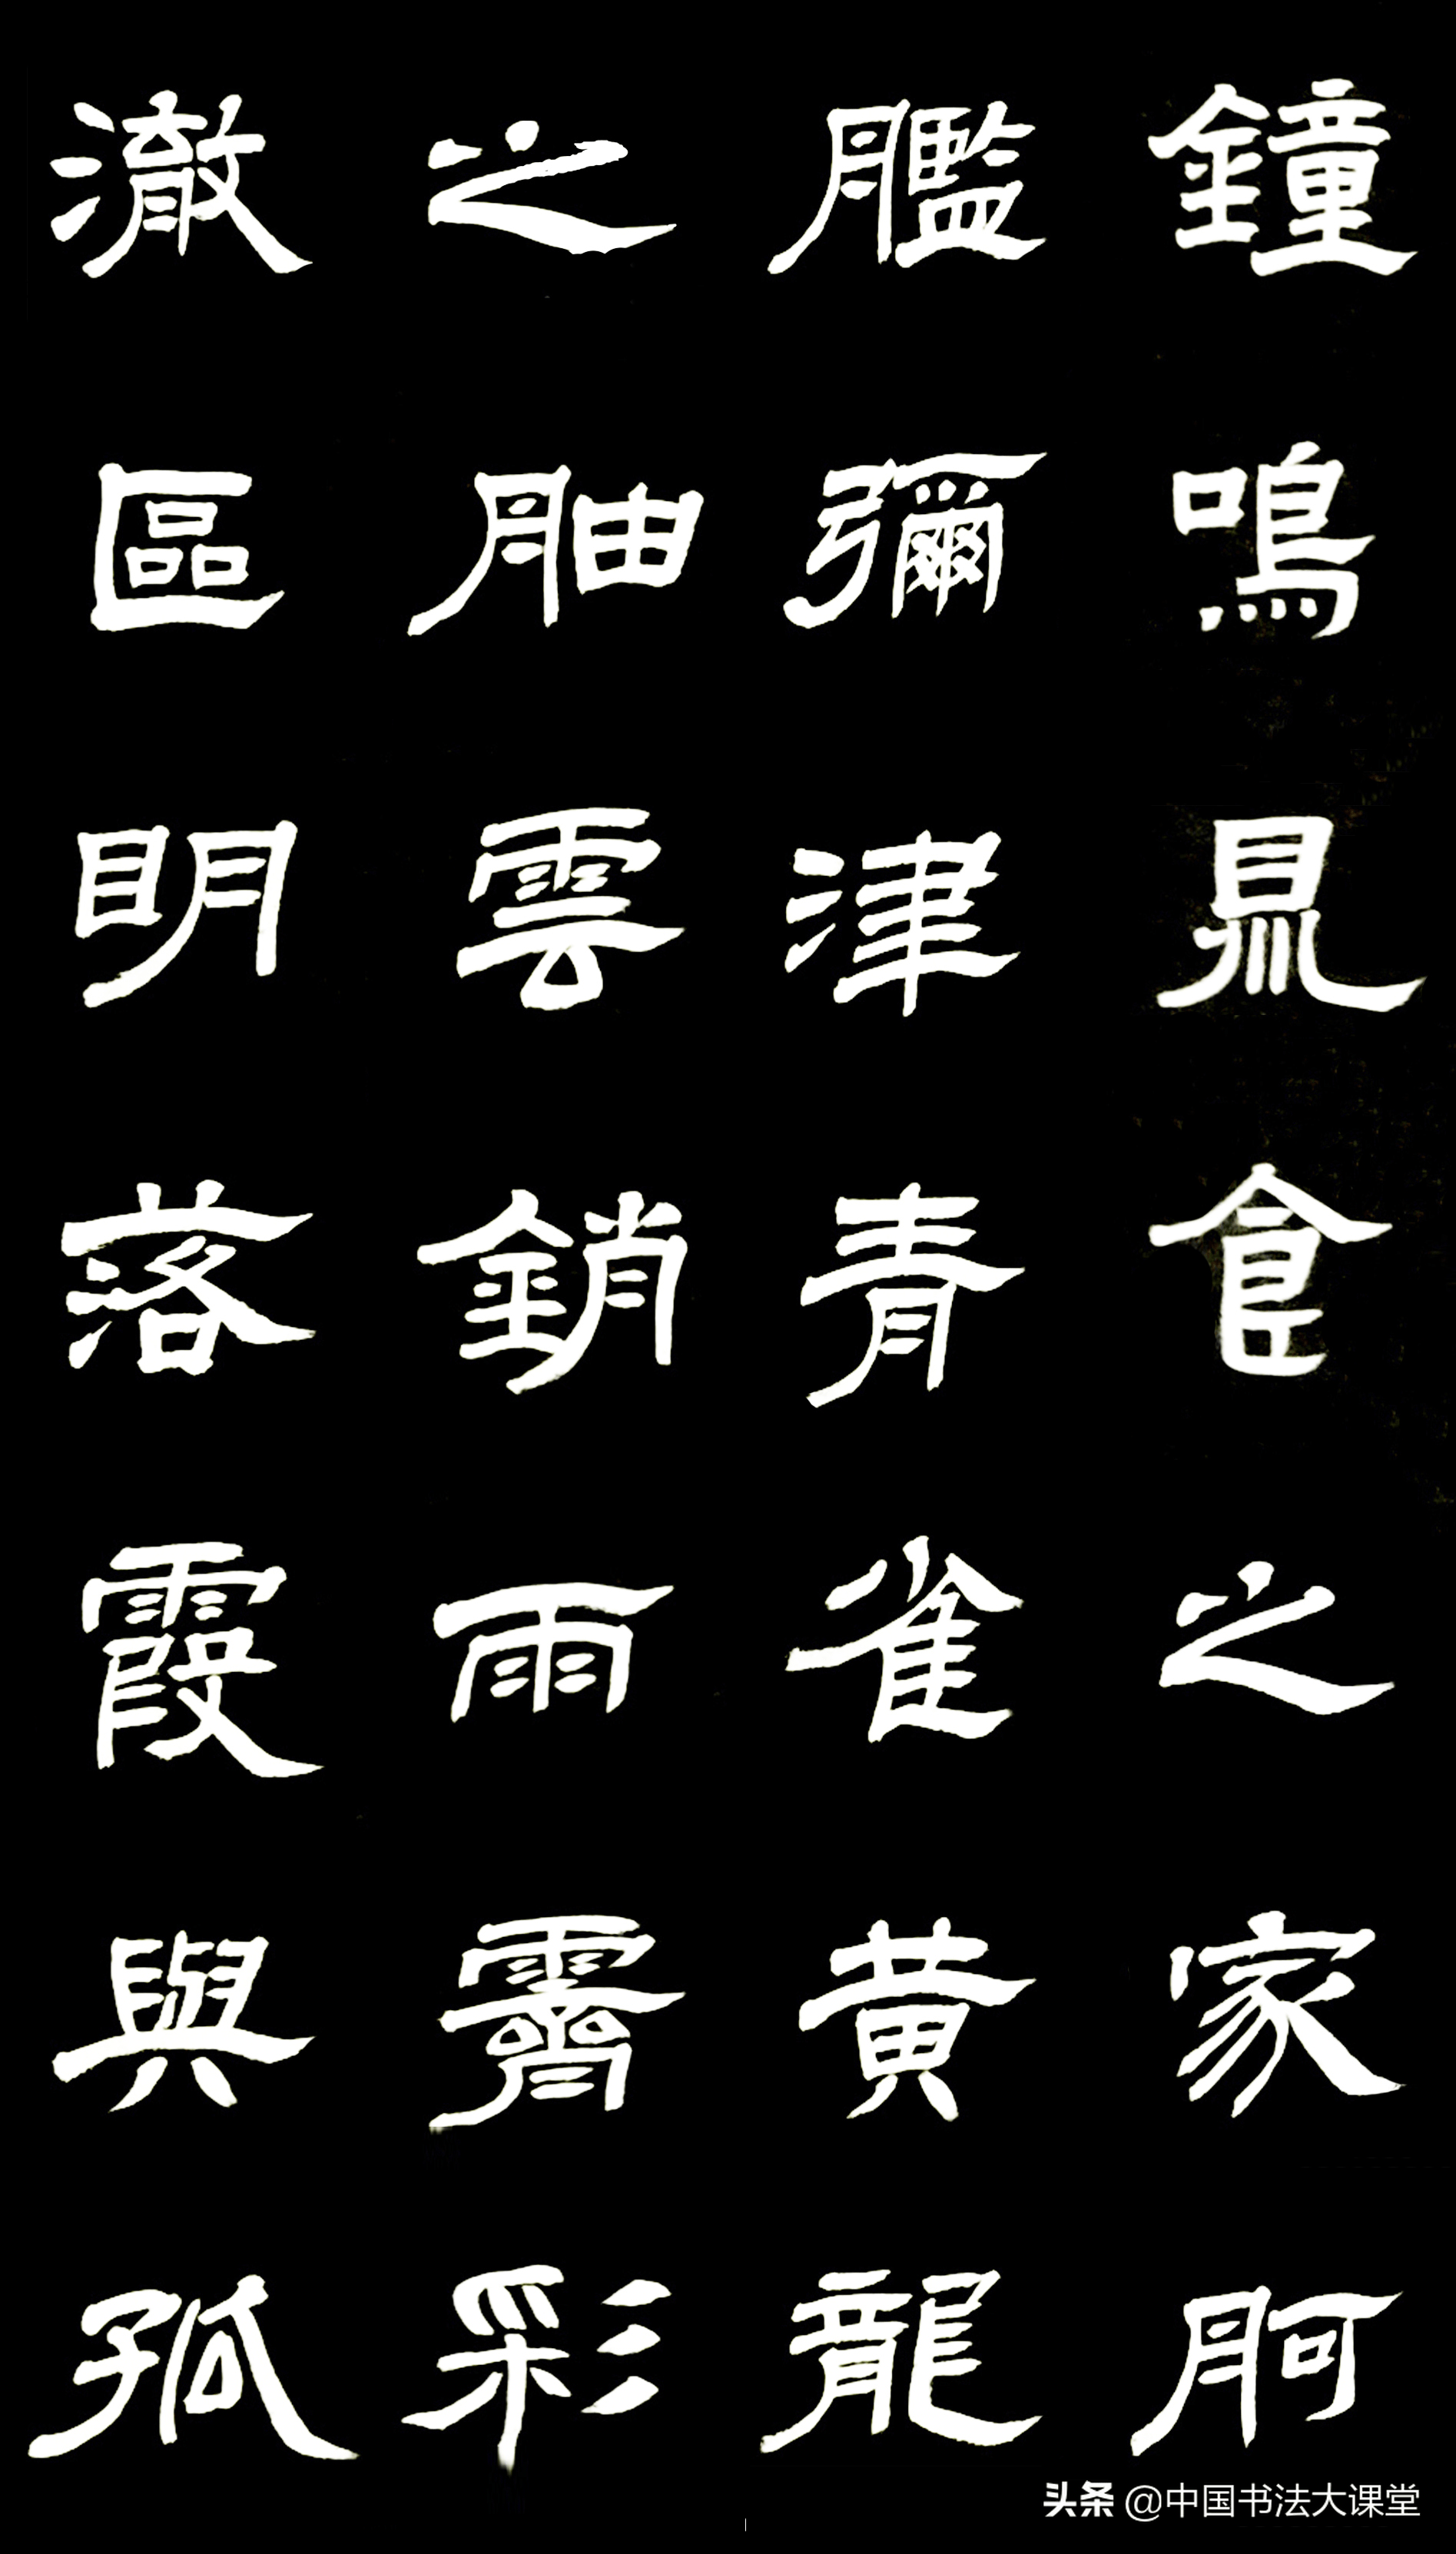 鐘鳴鼎食之家舸
艦彌津青雀黄龍
之舳雲銷雨霽彩
澈區明落霞與孤
头条 @中国书法大课堂